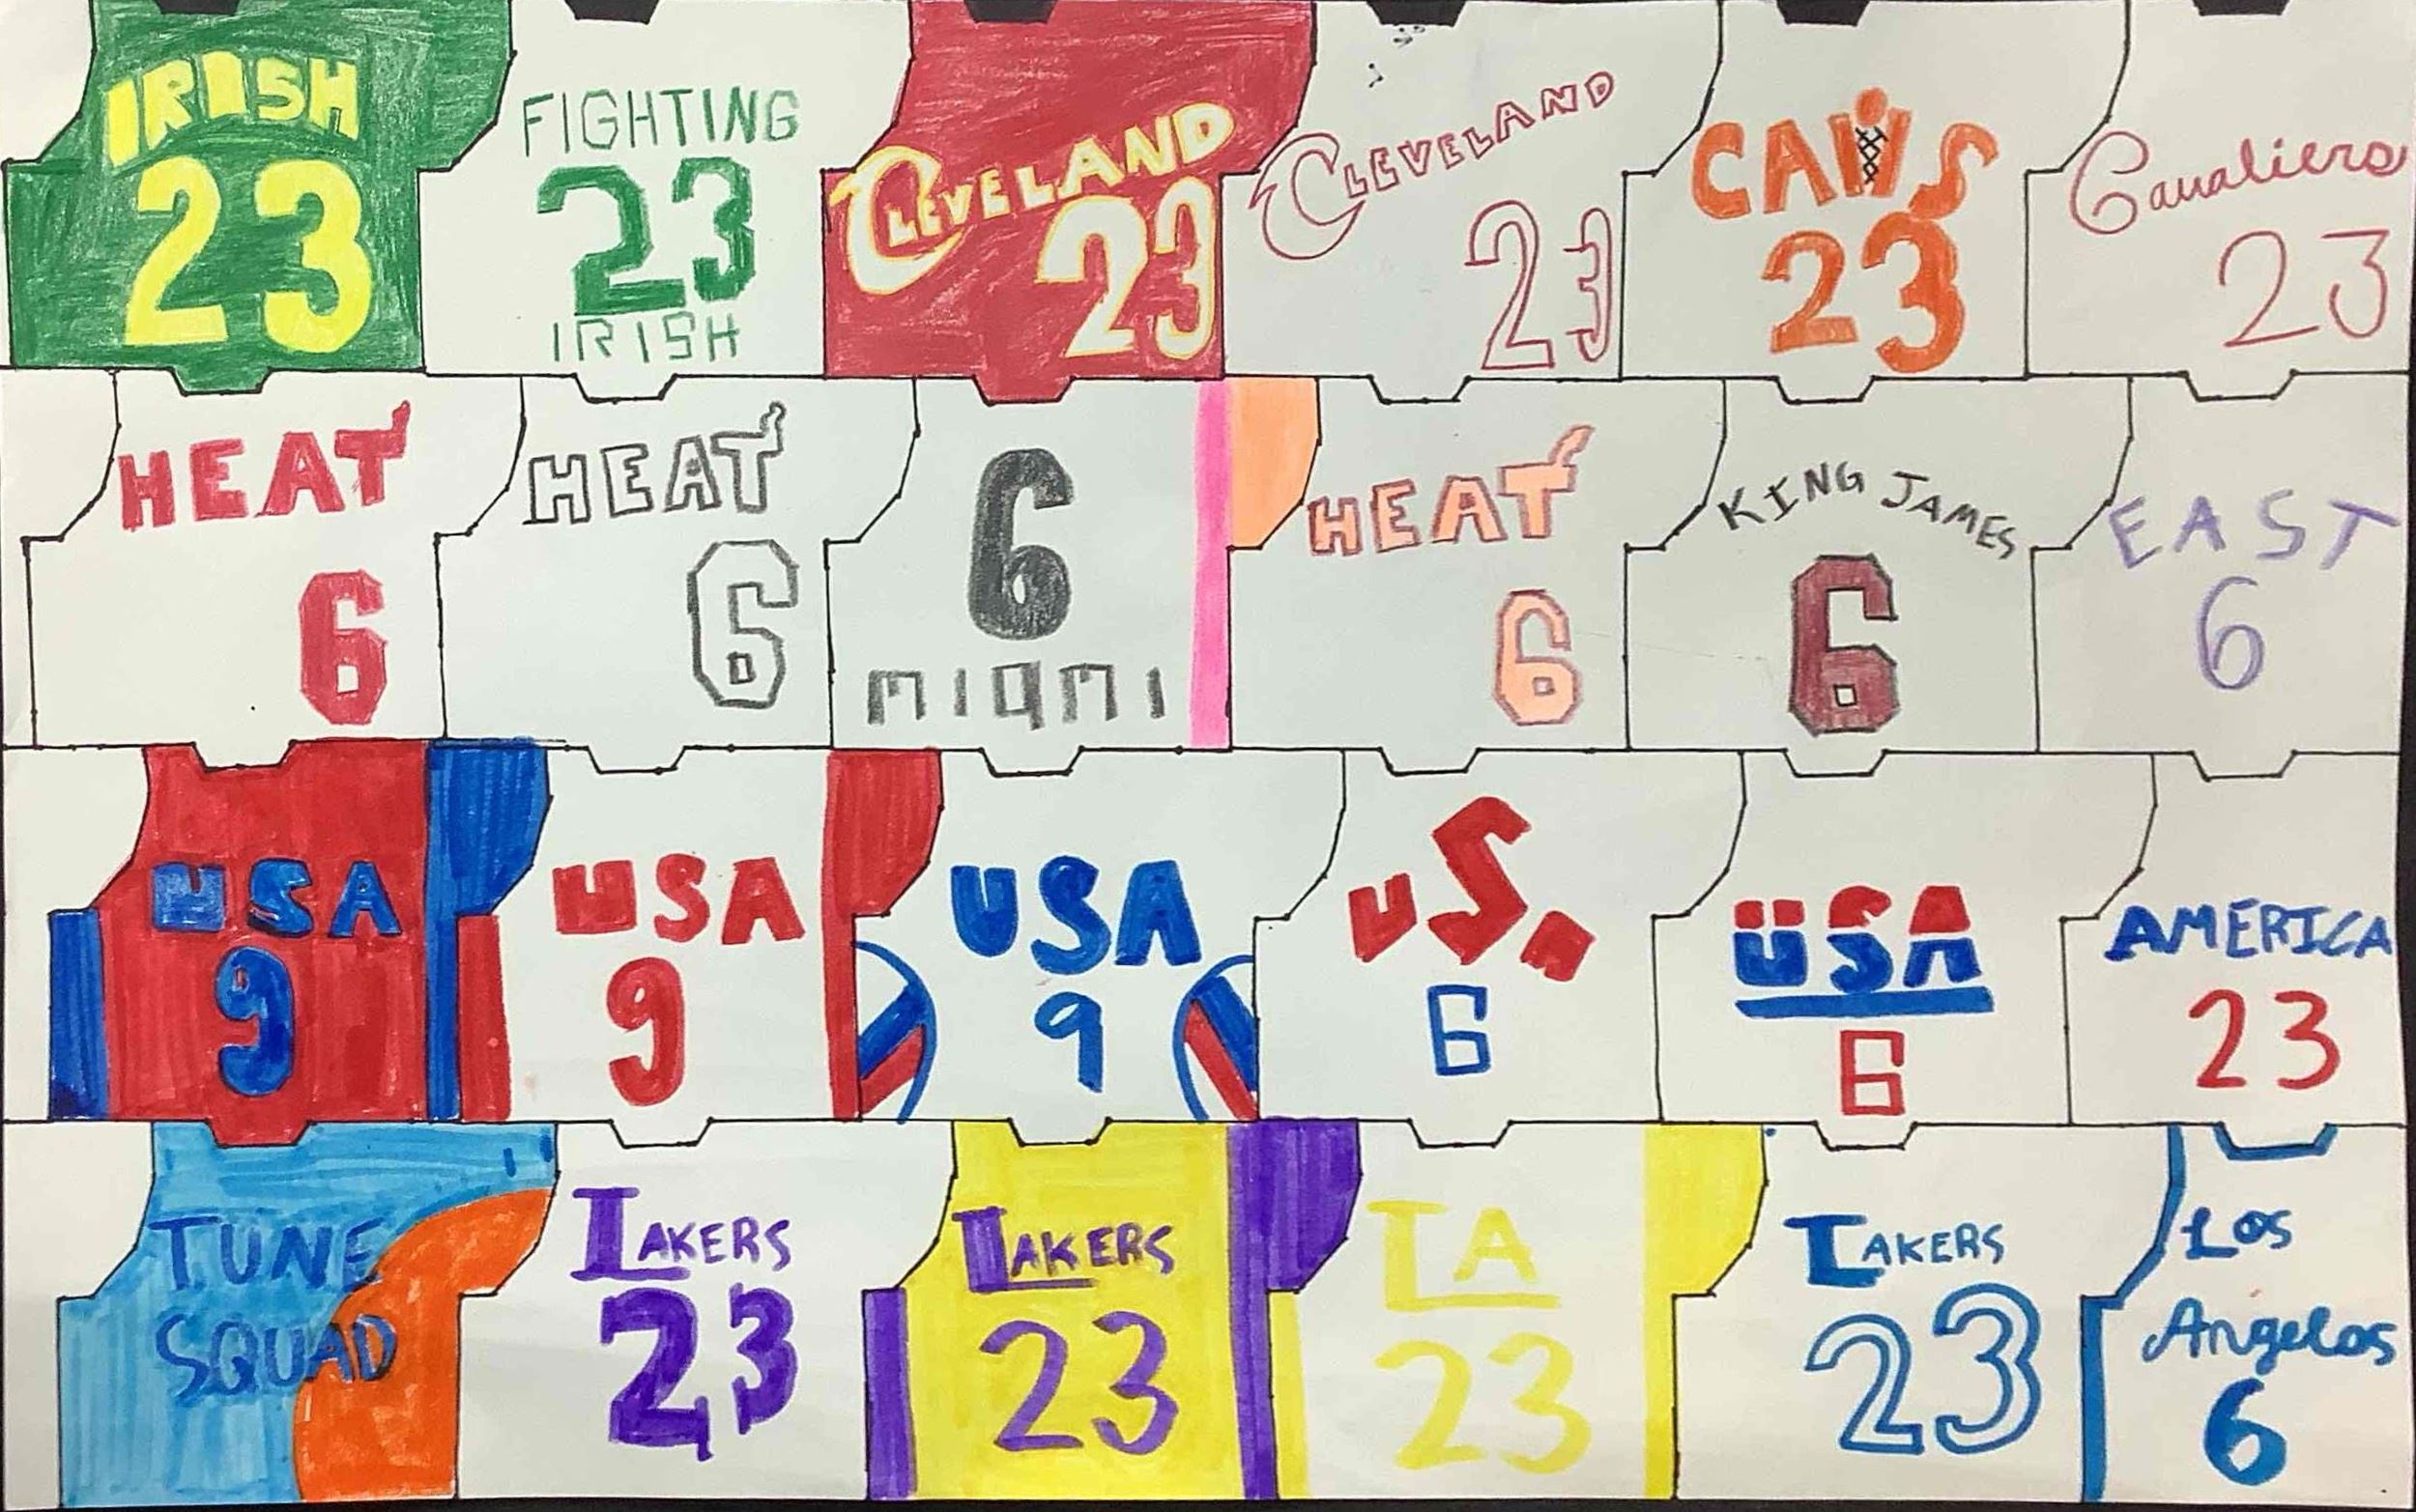 IRISH
23
FIGHTING
23
IRISH
CLEVELAND
23
CLEVELAND
23
CAVS
23
Cavaliers
23
HEAT
6
HEAT
6
6
MIAMI
HEAT
6
KING JAMES
6
EAST
6
USA
9
USA
9
USA
9
USA
6
USA
6
AMERICA
23
TUNE
SQUAD
LAKERS
23
LAKERS
23
LA
23
LAKERS
23
Los
Angelos
6